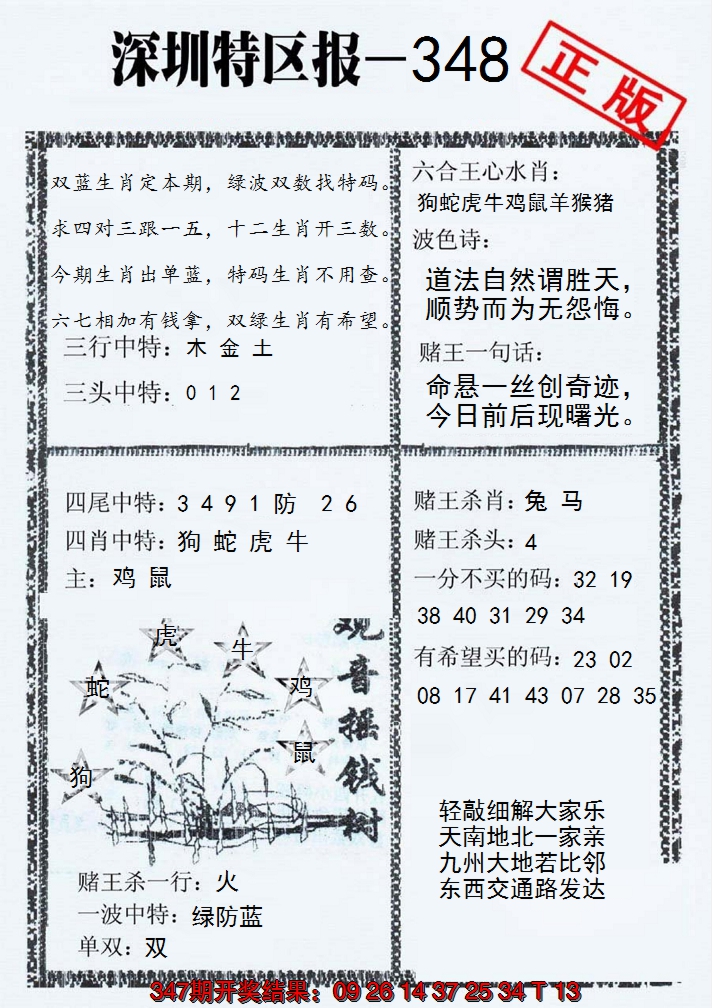 深圳特区报—348
正版
双蓝生肖定本期，绿波双数找特码。
求四对三跟一五，十二生肖开三数。
今期生肖出单蓝，特码生肖不用查。
六七相加有钱拿，双绿生肖有希望。
三行中特：木 金 土
三头中特：0 1 2
六合王心水肖：
狗蛇虎牛鸡鼠羊猴猪
波色诗：
道法自然谓胜天，
顺势而为无怨悔。
赌王一句话：
命悬一丝创奇迹，
今日前后现曙光。
四尾中特：3 4 9 1 防 2 6
四肖中特：狗 蛇 虎 牛
主：鸡 鼠
虎
牛
蛇
鸡
鼠
狗
观音摇钱树
赌王杀一行：火
一波中特：绿防蓝
单双：双
赌王杀肖：兔 马
赌王杀头：4
一分不买的码：32 19
38 40 31 29 34
有希望买的码：23 02
08 17 41 43 07 28 35
轻敲细解大家乐
天南地北一家亲
九州大地若比邻
东西交通路发达
347期开奖结果：09 26 14 37 25 34 T 13